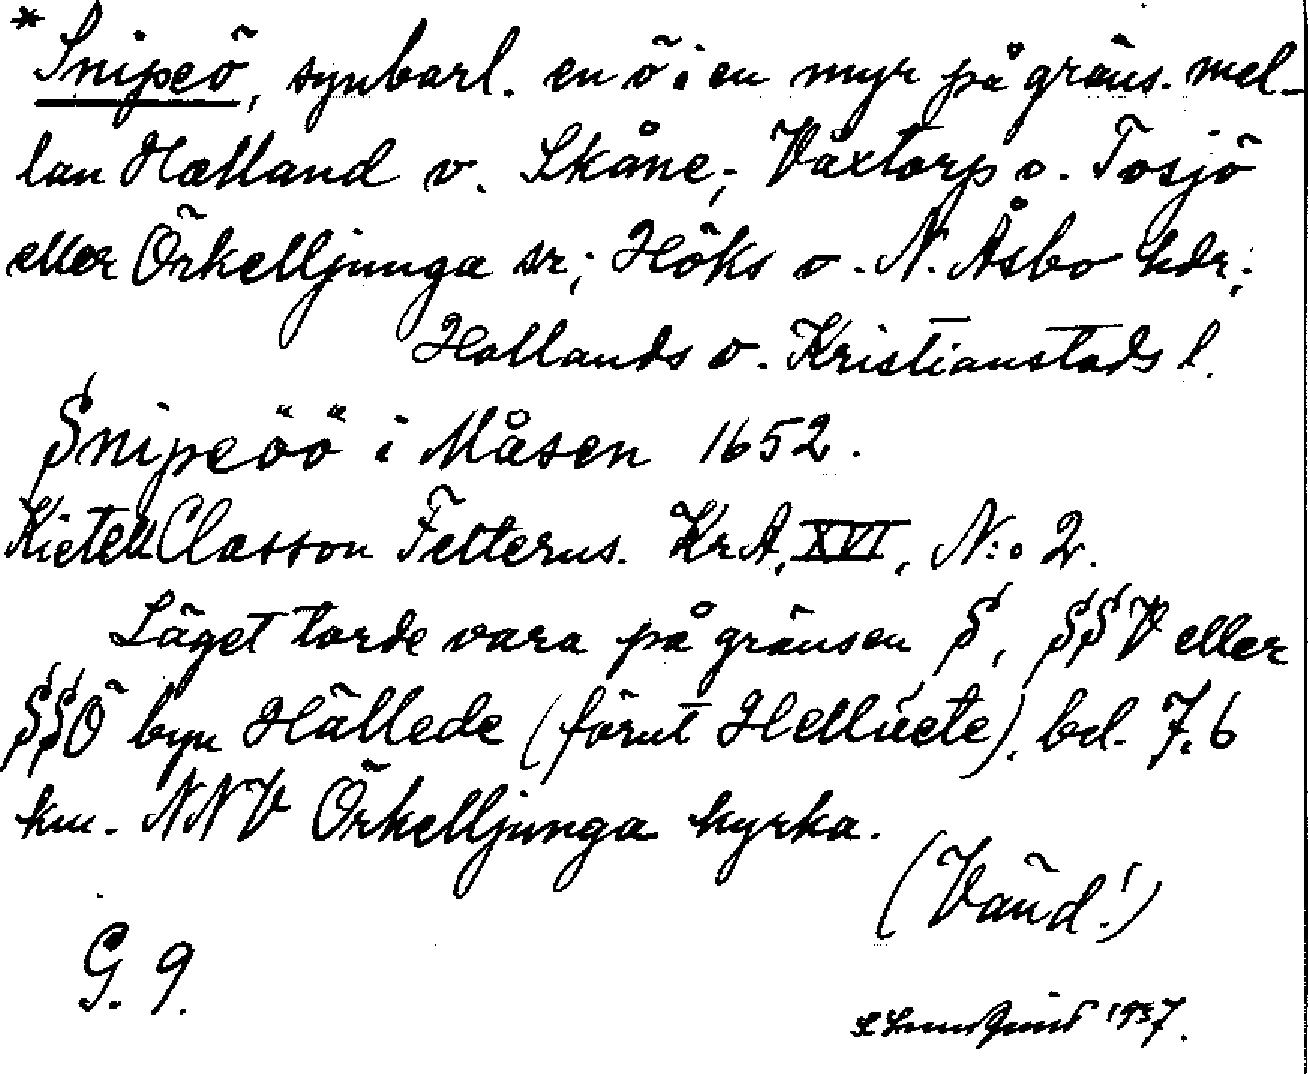 * Snipeö, synbarl. en ö i en myr på gräns. mel-
lan Halland o. Skåne; Våxtorp o. Tosjö
eller Örkelljunga sr; Höks o. N. Åsbo hdr;
Hallands o. Kristianstads l.
Snipeöö i Måsen 1652.
Kietell Classon Felterus. KrA, XVI, N:o 2.
Läget torde vara på gränsen S, SSV eller
SSÖ byn Hällede (förut Helluete), bel. 7.6
km. NNV Örkelljunga kyrka.
(Vänd!)
G. 9.
1937.